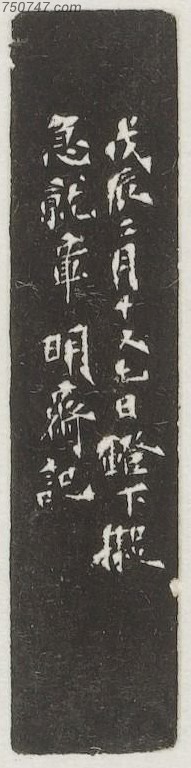 750747.com
戊辰二月十又九日鐙下擬
急就章 明齋記